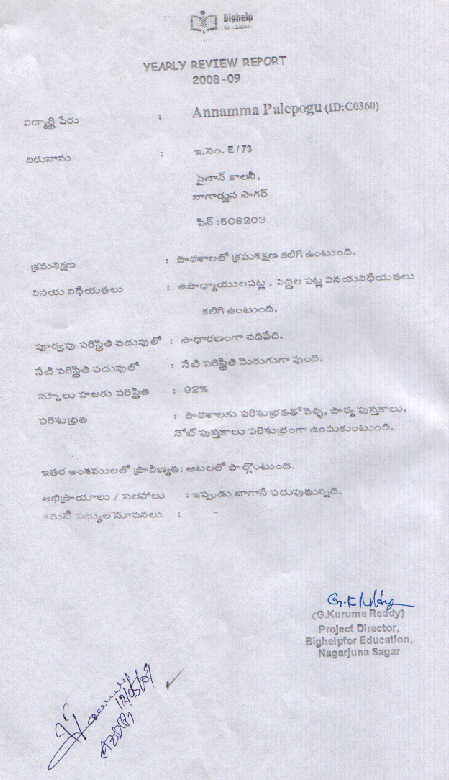 Bighelp
for education
YEARLY REVIEW REPORT
2008-09
విద్యార్థి పేరు : Annamma Palepogu (ID:C0360)
చిరునామ : ఇ.నెం. E/73
పైలాన్ కాలనీ,
నాగార్జున సాగర్
పిన్ :508203
క్రమశిక్షణ : పాఠశాలలో క్రమశిక్షణ కలిగి ఉంటుంది.
వినయ విధేయతలు : ఉపాధ్యాయులపట్ల, పెద్దల పట్ల వినయవిధేయతలు
కలిగి ఉంటుంది.
పూర్వపు పరిస్థితి చదువులో : సాధారణంగా చదివేది.
నేటి పరిస్థితి చదువులో : నేటి పరిస్థితి మెరుగుగా వుంది.
స్కూలు హాజరు పరిస్థితి : 92%
పరిశుభ్రత : పాఠశాలకు పరిశుభ్రతతో వచ్చి, పాఠ్య పుస్తకాలు,
నోట్ పుస్తకాలు పరిశుభ్రంగా ఉంచుకుంటుంది.
ఇతర అంశములలో ప్రావీణ్యత: ఆటలలో పాల్గొంటుంది.
అభిప్రాయాలు / సలహాలు : ఇప్పుడు బాగానే చదువుతున్నది.
కమిటి సభ్యుల సూచనలు : -
(G.Kuruma Reddy)
Project Director,
Bighelpfor Education,
Nagarjuna Sagar